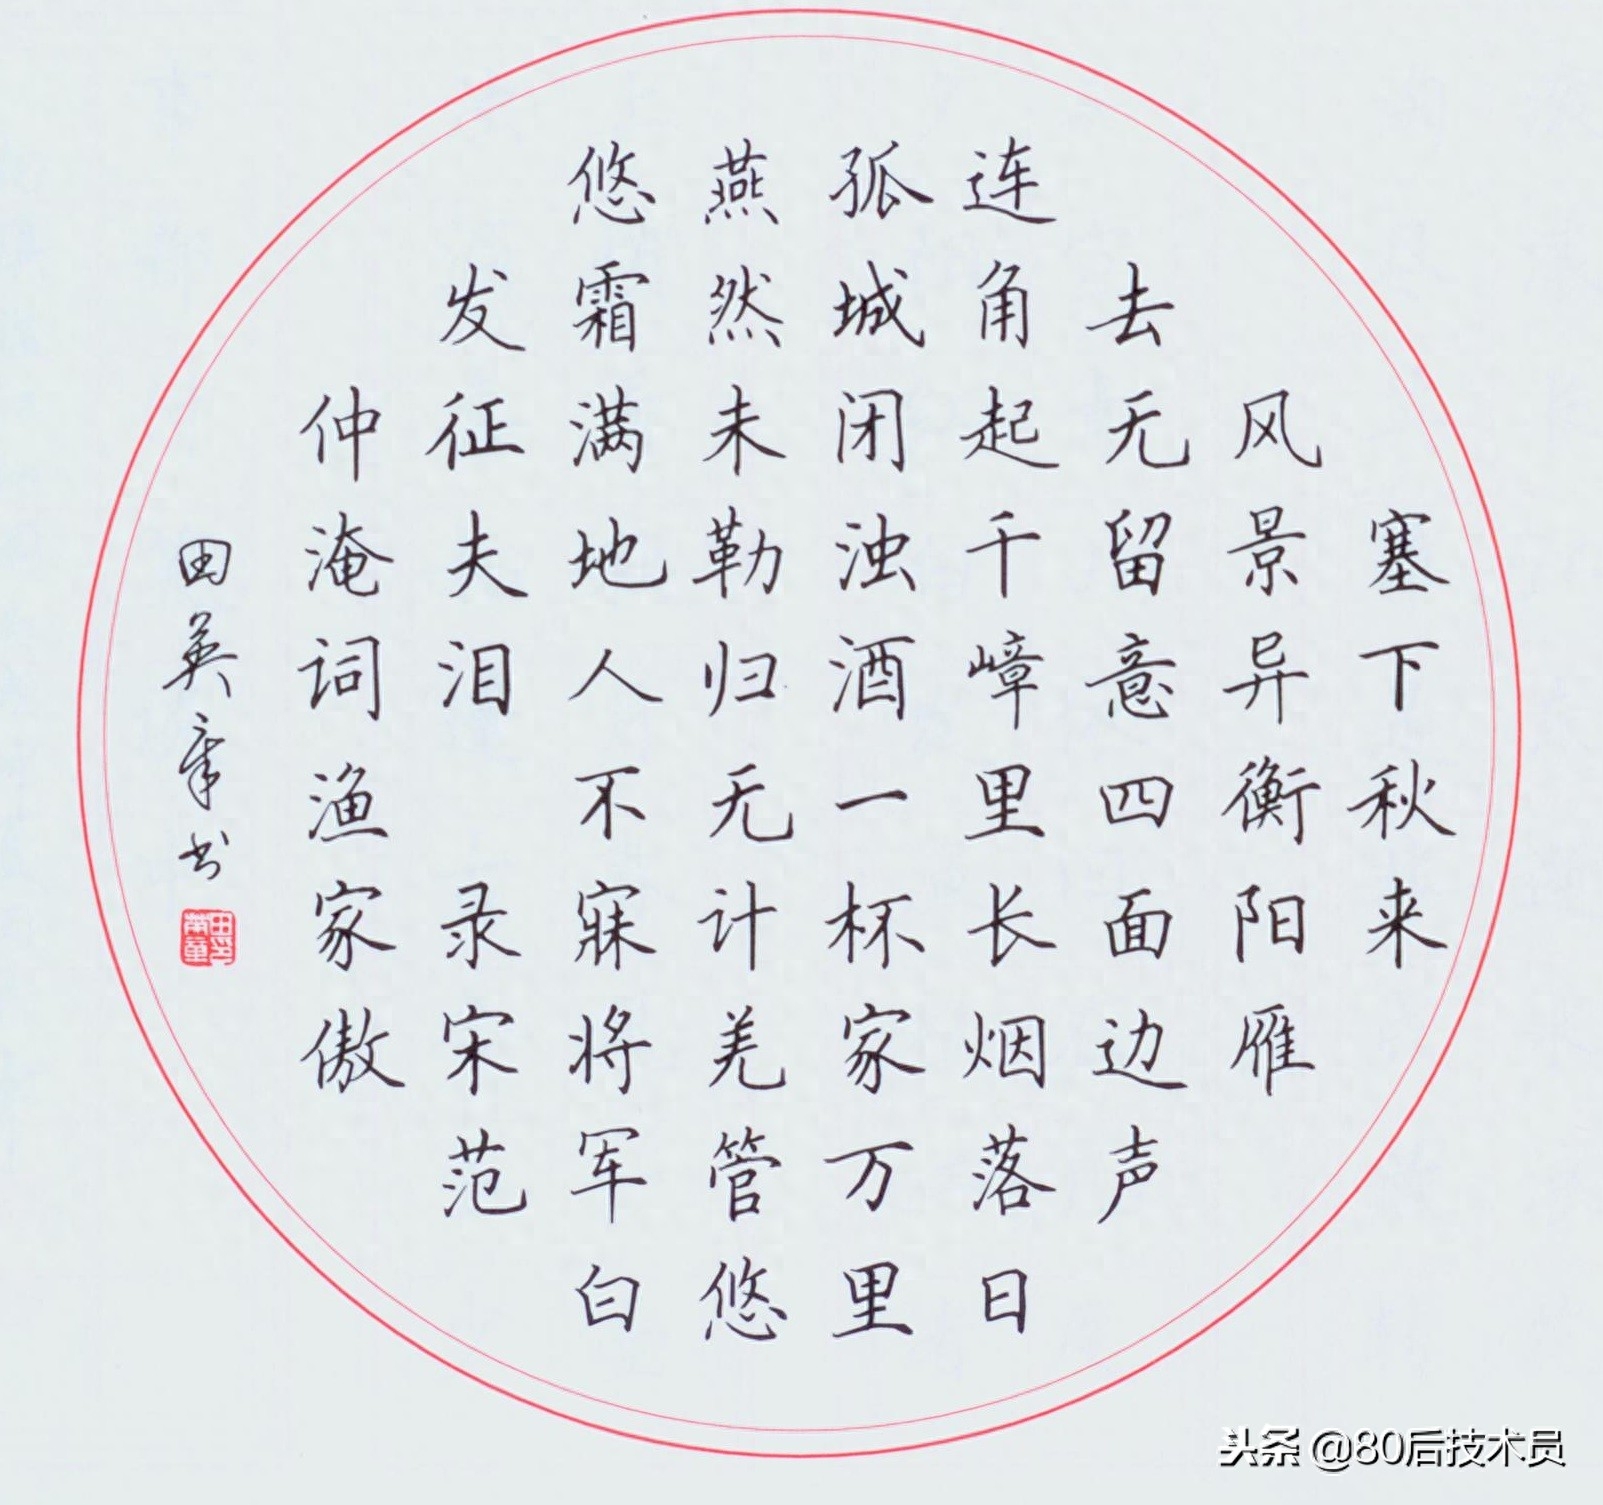 塞下秋来
风景异衡阳雁
去无留意四面边声
连角起千嶂里长烟落日
孤城闭浊酒一杯家万里
燕然未勒归无计羌管悠
悠霜满地人不寐将军白
发征夫泪 录宋范
仲淹词渔家傲
田英章书
头条 @80后技术员